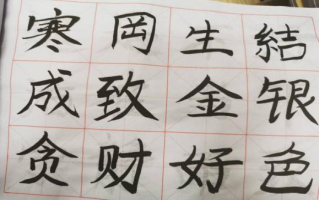 寒冈生結
成致金银
贪财好色